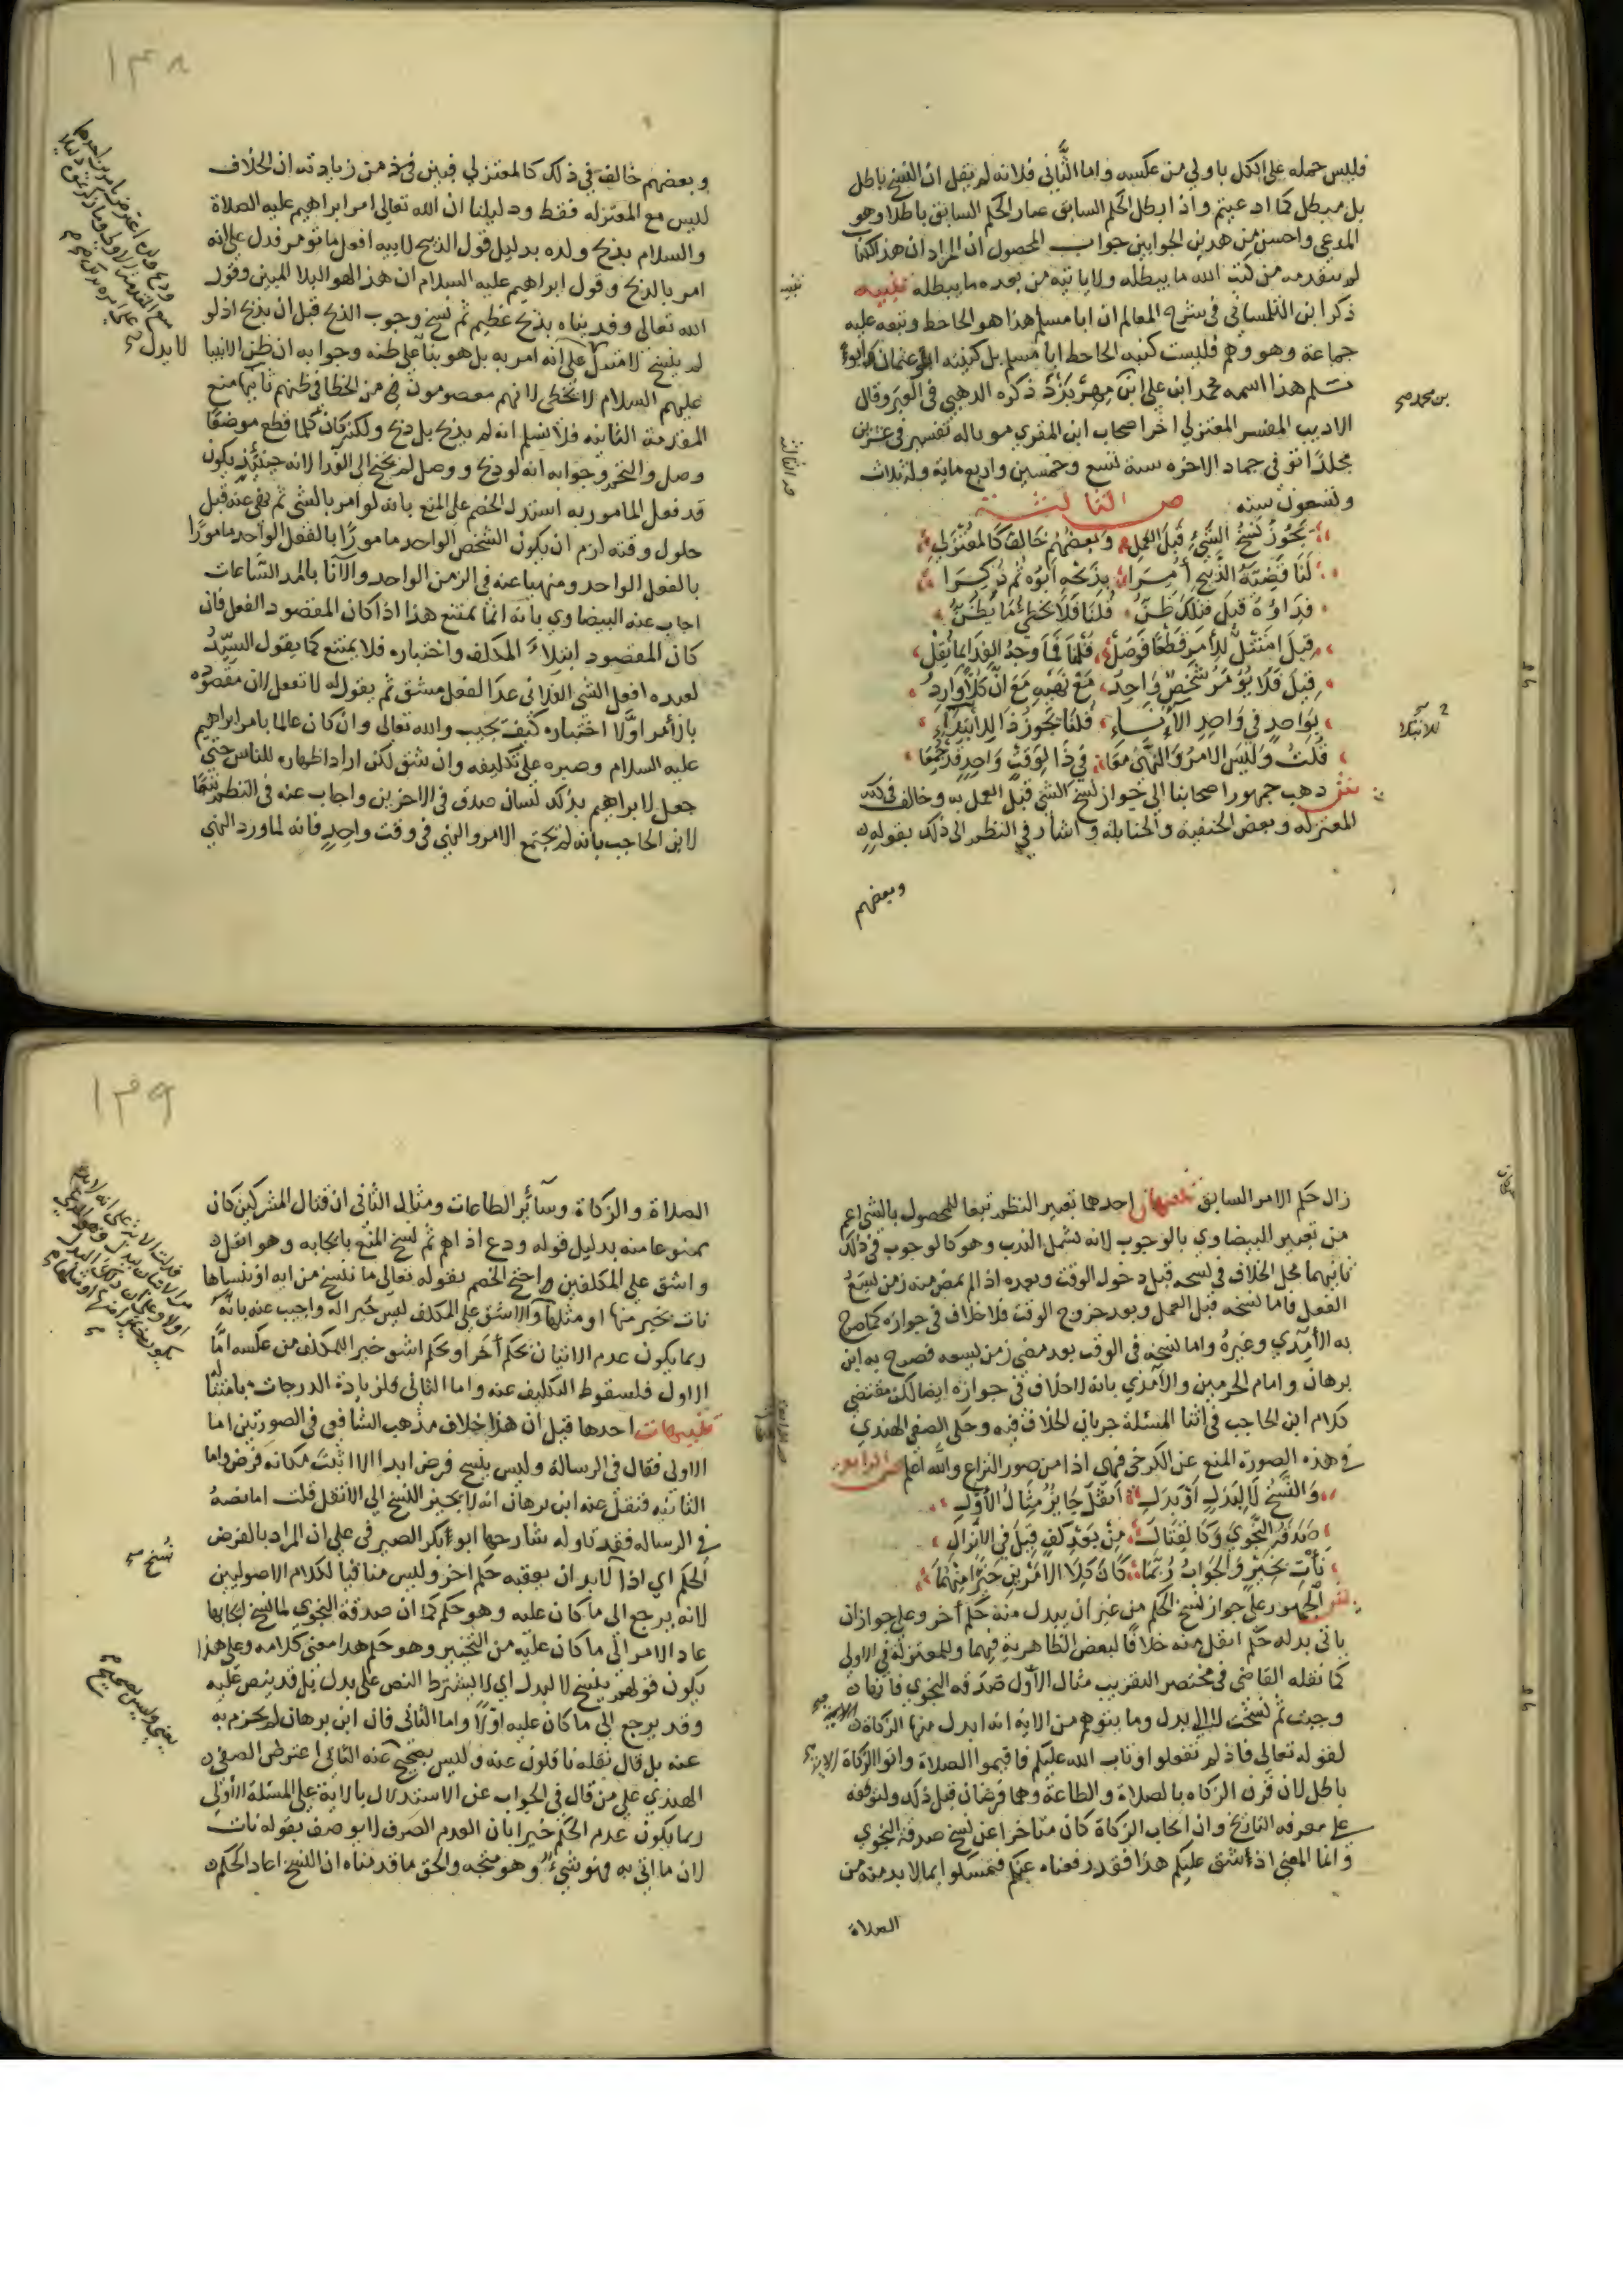 فليس حمله على الكل باولي من عكسه واما الثاني فلانه لم يقل ان النسخ باطل
بل مبطل كما ادعيتم واذا ابطل الحكم السابق صار الحكم السابق باطلا وهو
المدعي واحسن من هذين الجوابين جواب المحصول ان المراد ان هذا الكتاب
لم يتقدمه من كتب الله ما يبطله ولا ياتيه من بعده ما يبطله تنبيه
ذكر ابن التلمساني في شرح المعالم ان ابا مسلم هذا هو الجاحظ وتبعه عليه
جماعة وهو وهم فليست كنية الجاحظ ابا مسلم بل كنيته ابو عثمان وابو
مسلم هذا اسمه محمد ابن علي ابن مهربزد ذكره الذهبي في العبر وقال
الاديب المفسر المعتزلي اخر اصحاب ابن المقري موتا له تفسير في عشرين
مجلدا توفي في جماد الاخره سنة تسع وخمسين واربع ماية وله ثلاث
وتسعون سنه ص الثالثة
يجوز نسخ الشيء قبل العمل وبعضهم خالف كالمعتزلي
لنا قضية الذبيح أمرا بذبحه ابوه ثم ذكرا
فداؤه قيل فتلك ظن قلنا فلا يخطئ ما يظن
قيل امتثل للأمر قطعا فوصل قلنا فما وجه الفدا بما نقل
قيل فلا يؤمر شخص واحد مع نهيه مع ان كلا وارد
بواحد في واحد الآناء قلنا يجوز ذا للابتداء
قلت وليس الامر والنهي معا في ذا لوقت واحد قد جمعا
ش ذهب جمهور اصحابنا الي جواز نسخ الشي قبل العمل به وخالف في ذلك
المعتزله وبعض الحنفية والحنابلة واشار في النظم الى ذلك بقوله
وبعضهم
تنبيه
ص الثالثة
بن محمد صح
للابتلا
١٣٨
وبعضهم خالف في ذلك كالمعتزلي فبين في من زيادته ان الخلاف
ليس مع المعتزله فقط ودليلنا ان الله تعالى امر ابراهيم عليه الصلاة
والسلام بذبح ولده بدليل قول الذبيح لابيه افعل ما تؤمر فدل على انه
امر بالذبح وقول ابراهيم عليه السلام ان هذا لهو البلا المبين وقول
الله تعالى وفديناه بذبح عظيم ثم نسخ وجوب الذبح قبل ان يذبح اذ لو
لم ينسخ لامتثل على انه امر به بل هو بنا على ظنه وجوابه ان ظن الانبيا
عليهم السلام لا يخطي لانهم معصومون من الخطا في ظنهم ثانيها منع
المقدمة الثانيه فلا نسلم انه لم يذبح بل ذبح ولكن كان كلما قطع موضعا
وصل والتحم وجوابه انه لو ذبح ووصل لم يحتج الى الفدا لانه حينئذ يكون
قد فعل المامور به استدل الخصم على المنع بانه لو امر بالشي ثم نهي عنه قبل
حلول وقته لزم ان يكون الشخص الواحد مامورا بالفعل الواحد مامورا
بالفعل الواحد ومنهيا عنه في الزمن الواحد والآنا بالمد الساعات
اجاب عنه البيضاوي بانه انما يمتنع هذا اذا كان المقصود الفعل فان
كان المقصود ابتلاء المكلف واختباره فلا يمتنع كما يقول السيد
لعبده افعل الشي الفلاني غدا لفعل مشق ثم يقول له لا تفعل لان مقصوده
بالأمر اولا اختباره كيف يجيب والله تعالى وان كان عالما بامر ابراهيم
عليه السلام وصبره على تكليفه وان شق لكن اراد اظهاره للناس حتى
جعل لابراهيم بذلك لسان صدق في الاخرين واجاب عنه في النظم تبعا
لابن الحاجب بانه لم يجتمع الامر والنهي في وقت واحد فانه لما ورد النهي
لا بدل صح
زال حكم الامر السابق تنبيهان احدهما تعبير النظم تبعا للمحصول بالشي اعم
من تعبير البيضاوي بالوجوب لانه يشمل الندب وهو كالوجوب في ذلك
ثانيهما محل الخلاف في نسخه قبل دخول الوقت وبعده اذا لم يمض منه زمن يسع
الفعل فاما نسخه قبل العمل وبعد خروج الوقت فلا خلاف في جوازه كما صرح
به الآمدي وغيره واما نسخه في الوقت بعد مضي زمن يسعه فصرح به ابن
برهان وامام الحرمين والآمدي بانه لا خلاف في جوازه ايضا لكن مقتضي
كلام ابن الحاجب في اثنا المسئلة جريان الخلاف فيه وحكى الصفي الهندي
في هذه الصورة المنع عن الكرخي فهي اذا من صور النزاع والله اعلم ص الرابعه
والنسخ لا لبدل او بدل اثقل جايز مثال الاول
صدقة النجوى وكالقتال من بعد كف قيل في الانزال
نأت بخير والجواب ربما كان كلا الامرين خيرا منهما
ش الجمهور على جواز نسخ الحكم من غير ان يبدل منه حكم أخر وعلى جواز ان
ياتي بدله حكم اثقل منه خلافا لبعض الظاهرية فيهما وللمعتزلة في الاولى
كما نقله القاضي في مختصر التقريب مثال الاول صدقة النجوي فانها
وجبت ثم نسخت لا الى بدل وما يتوهم من الاية انه ابدل منها الزكاة
لقوله تعالى فاذ لم تفعلوا وتاب الله عليكم فاقيموا الصلاة واتوا الزكاة الاية
باطل لان قرن الزكاه بالصلاة والطاعة وهما فرضان قبل ذلك ولتوقفه
على معرفه التاريخ وان ايجاب الزكاة كان متاخرا عن نسخ صدقة النجوي
وانما المعنى اذ أشق عليكم هذا فقد رفعناه عنكم فتمسكوا بما لا بد منه من
الصلاة
١٣٩
الصلاة والزكاة وسآئر الطاعات ومثال الثاني ان قتال المشركين كان
ممنوعا منه بدليل قوله ودع اذاهم ثم نسخ المنع بايجابه وهو اثقل
واشق على المكلفين واحتج الخصم بقوله تعالى ما ننسخ من اية او ننساها
نات بخير منها او مثلها والاشق على المكلف ليس خيرا له واجيب عنه بانه
ربما يكون عدم الاتيان بحكم أخر او بحكم اشق خير للمكلف من عكسه اما
الاول فلسقوط التكليف عنه واما الثاني فلزيادة الدرجات بامتثاله
تنبيهات احدها قيل ان هذا خلاف مذهب الشافعي في الصورتين اما
الاولى فقال في الرسالة وليس ينسخ فرض ابدا الا اثبت مكانه فرض واما
الثانيه فنقل عنه ابن برهان انه لا يجيز النسخ الي الاثقل قلت اما نصه
في الرساله فقد تاوله شارحها ابو بكر الصيرفي على ان المراد بالفرض
الحكم اي اذا لا بد ان يعقبه حكم اخر وليس منافيا لكلام الاصوليين
لانه يرجع الى ما كان عليه وهو حكم كما ان صدقة النجوي لما نسخ ايجابها
عاد الامر الى ما كان عليه من التخيير وهو حكم هذا معنى كلامه وعلى هذا
يكون قولهم ينسخ لا لبدل اي لا يشترط النص على بدل بل قد ينص عليه
وقد يرجع الى ما كان عليه اولا واما الثاني فان ابن برهان لم يجزم به
عنه بل قال نقله ناقلون عنه وليس بصحيح عنه الثاني اعترض الصفي
الهندي على من قال في الجواب عن الاستدلال بالاية على المسئلة الأولى
ربما يكون عدم الحكم خيرا بان العدم الصرف لا يوصف بقوله نات
لان ما اتي به فهو شيء وهو متجه والحق ما قدمناه ان النسخ اعاد الحكم
نسخ صح